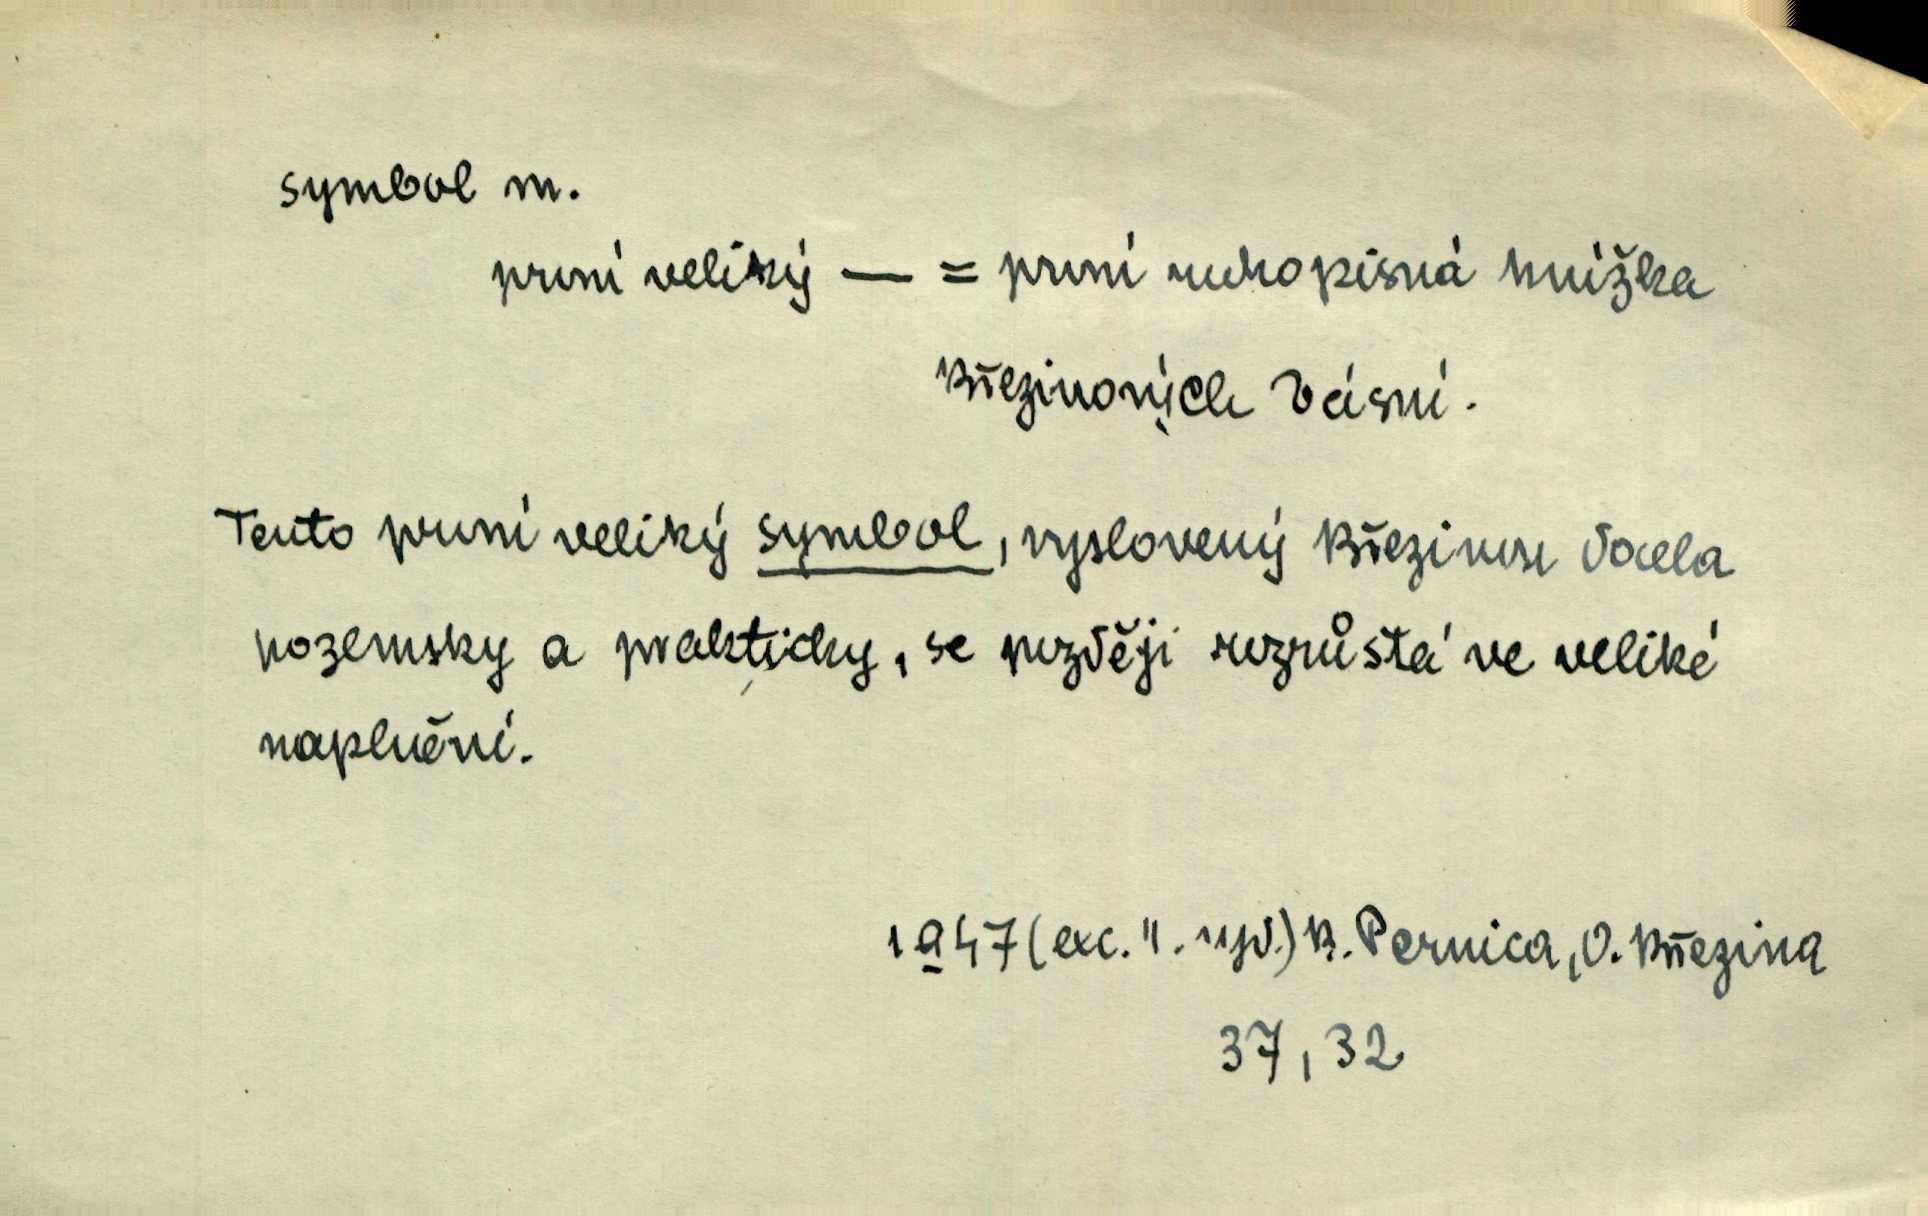 symbol m.
první veliký — = první rukopisná knížka
Březinových básní.
Tento první veliký symbol, vyslovený Březinou docela
pozemsky a prakticky, se později rozrůstá ve veliké
naplnění.
1947 (exc. II. vyd.) B. Pernica, O. Březina
37, 32